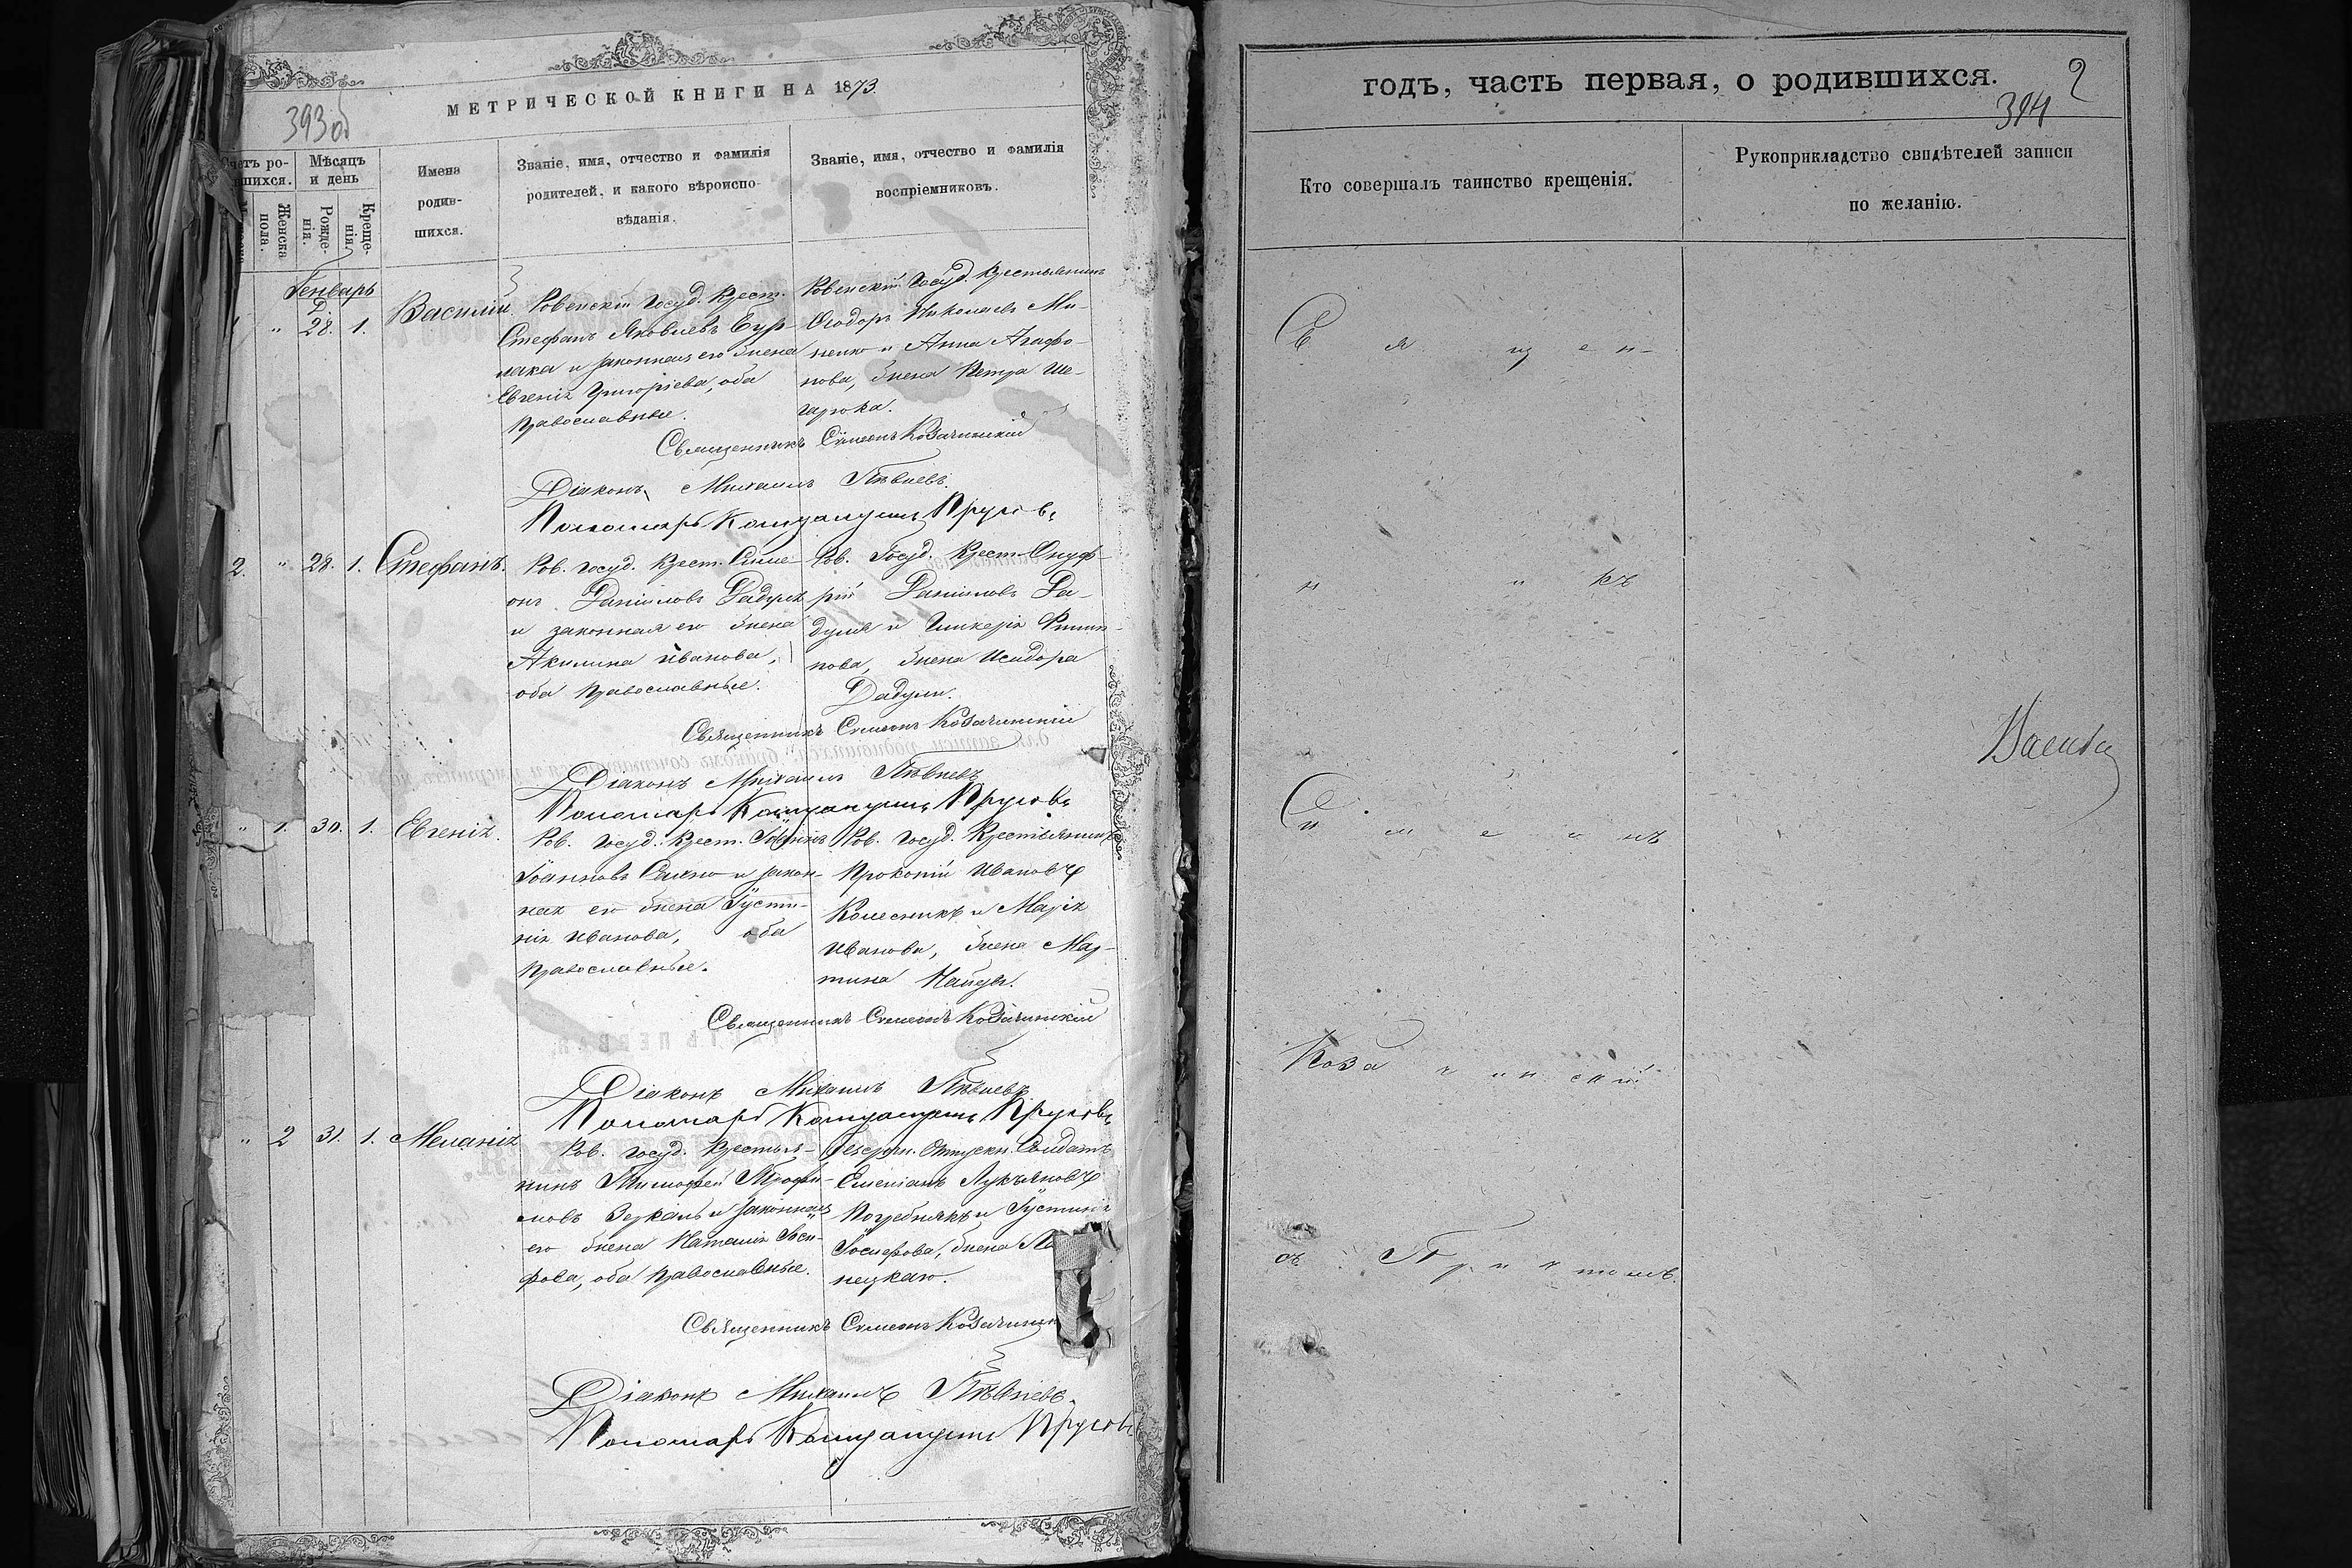 393об
МЕТРИЧЕСКОЙ КНИГИ НА 1873.
Счетъ ро-
шихся.
Мѣсяцъ
и день
Женска
пола.
Рожде-
нія.
Креще-
нія
Имена
родив-
шихся.
Званіе, имя, отчество и фамилія
родителей, и какого вѣроиспо-
вѣданія.
Званіе, имя, отчество и фамилія
воспріемниковъ.
Генварь
Д.
" 28. 1. Василій
Ровенскій Госуд. Крест.
Стефанъ Яковлевъ Бур-
лака и законная его жена
Евгенія Григоріева, оба
православные.
Ровенскій Госуд. Крестьянинъ
Ѳеодоръ Николаевъ Ми-
ненко и Анна Агафо-
нова, жена Петра Ше-
Священникъ Симеонъ Козачинскій
Діаконъ Михаилъ Пѣвневъ.
Пономарь Прусовъ
2. " 28. 1. Стефанъ.
Ров. госуд. Крест. Симе-
онъ Даніиловъ Дадуля
и законная его жена
Акилина Иванова,
оба православные.
Ров. Госуд. Крест. Онуф-
рій Даніиловъ Да-
дуля и Гликерія Филип-
пова, жена Исидора
Дадули.
Священникъ Симеонъ Козачинскій
Діаконъ Михаилъ Пѣвневъ
Пономарь Прусовъ
" 1. 30. 1. Евгенія.
Ров. госуд. Крест. Іоаннъ
Іоанновъ и закон-
ная его жена Іусти-
нія Иванова, оба
православные.
Ров. госуд. Крестьянинъ
Прокопій Ивановъ
Колесникъ и Марія
Иванова, жена Мар-
тина
Священникъ Симеонъ Козачинскій
Діаконъ Михаилъ Пѣвневъ
Пономарь Прусовъ
" 2 31. 1. Меланія
Ров. госуд. Крестья-
нинъ Тимофей Трофи-
мовъ Зеркаль и законная
его жена Наталія Іоси-
фова, оба православные.
Безсрочн. Отпускн. Солдатъ
Емеліанъ Лукьяновъ
Погребнякъ и Іустинія
Іосифова, жена
Священникъ Симеонъ Козачинск
Діаконъ Михаилъ Пѣвневъ.
Пономарь Прусовъ
годъ, часть первая, о родившихся.
2
394
Кто совершалъ таинство крещенія.
Рукоприкладство свидѣтелей записи
по желанію.
Священ-
никъ
Симеонъ
Козачинскій
съ Причтомъ.